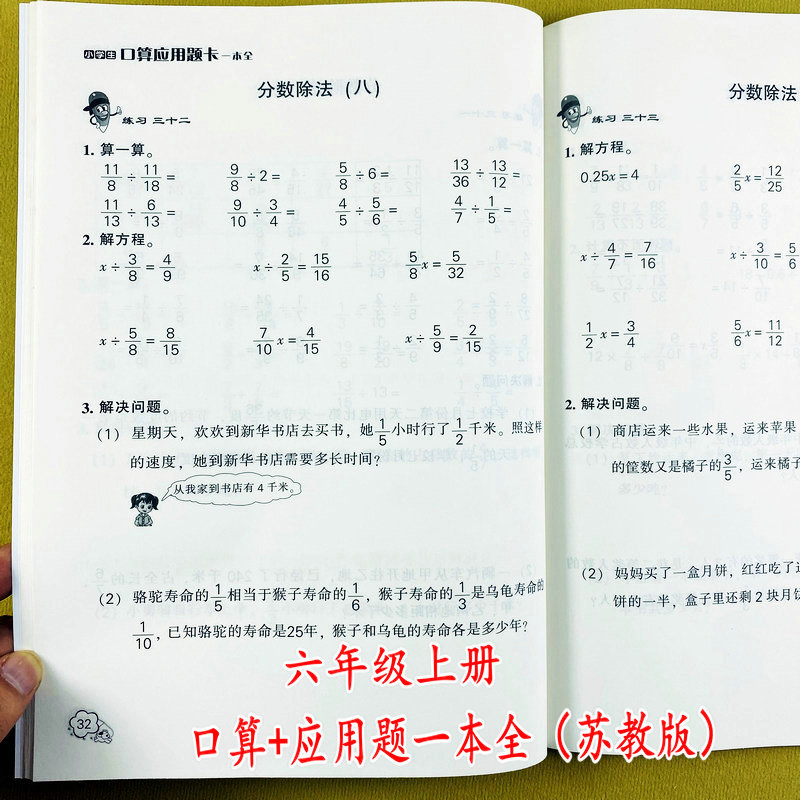 小学生口算应用题卡一本全
分数除法（八）
练习 三十二
1. 算一算。
11/8÷11/18= 9/8÷2= 5/8÷6= 13/36÷13/12=
11/13÷6/13= 9/10÷3/4= 4/5÷5/6= 4/7÷1/5=
2. 解方程。
x÷3/8=4/9 x÷2/5=15/16 5/8x=5/32
x÷5/8=8/15 7/10x=4/15 x÷5/9=2/15
3. 解决问题。
（1）星期天，欢欢到新华书店去买书，她1/5小时行了1/2千米。照这样
的速度，她到新华书店需要多长时间？
从我家到书店有4千米。
（2）骆驼寿命的1/5相当于猴子寿命的1/6，猴子寿命的1/3是乌龟寿命的
1/10，已知骆驼的寿命是25年，猴子和乌龟的寿命各是多少年？
32
分数除法
练习 三十三
1. 解方程。
0.25x=4 2/5x=12/25
x÷4/7=7/16 x÷3/10=5/6
1/2x=3/4 5/6x=11/12
2. 解决问题。
（1）商店运来一些水果，运来苹果
的筐数又是橘子的3/5，运来橘子
（2）妈妈买了一盒月饼，红红吃了这
饼的一半，盒子里还剩2块月饼
六年级上册
口算+应用题一本全（苏教版）